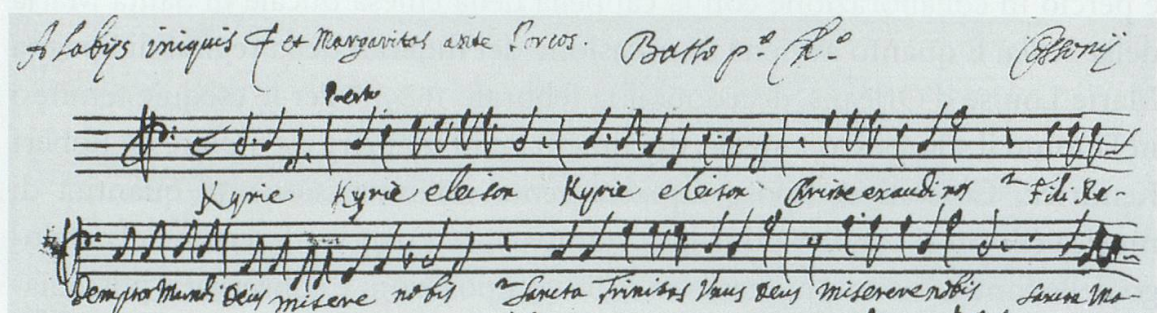 A labijs iniquis et Margaritas ante Porcos. Basso p.o Ch.o Cossonij
Presto
Kyrie Kyrie eleison Kyrie eleison Christe exaudi nos Fili Re-
demptor Mundi Deus misere nobis Sancta Trinitas Unus Deus miserere nobis Sancta Ma-